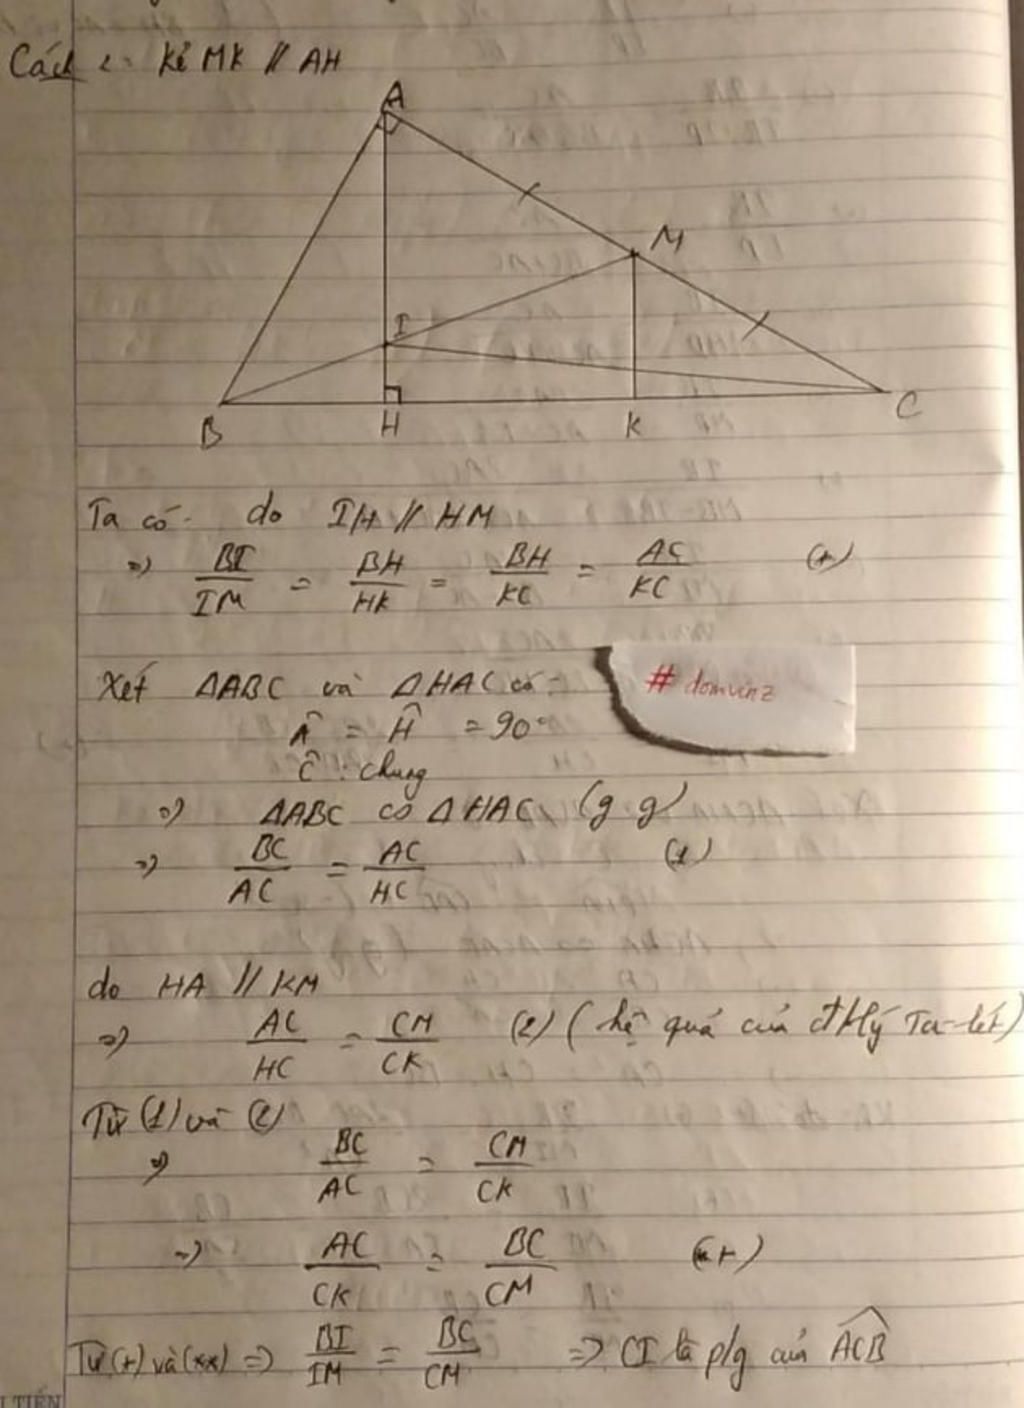 Cách 2: Kẻ MK // AH
A
M
I
B H K C
Ta có: do IH // HM
=> BI/IM = BH/HK = BH/KC = AC/KC (*)
Xét ΔABC và ΔHAC có:
# domvinz
Â = Ĥ = 90°
Ĉ : chung
=> ΔABC ∽ ΔHAC (g g)
=> BC/AC = AC/HC (1)
do HA // KM
=> AC/HC = CM/CK (2) (hệ quả của đ Hlý Ta-lét)
Từ (1) và (2)
=> BC/AC = CM/CK
=> AC/CK = BC/CM (**)
Từ (*) và (**) => BI/IM = BC/CM => CI là p/g của ACB̂
I TIẾN